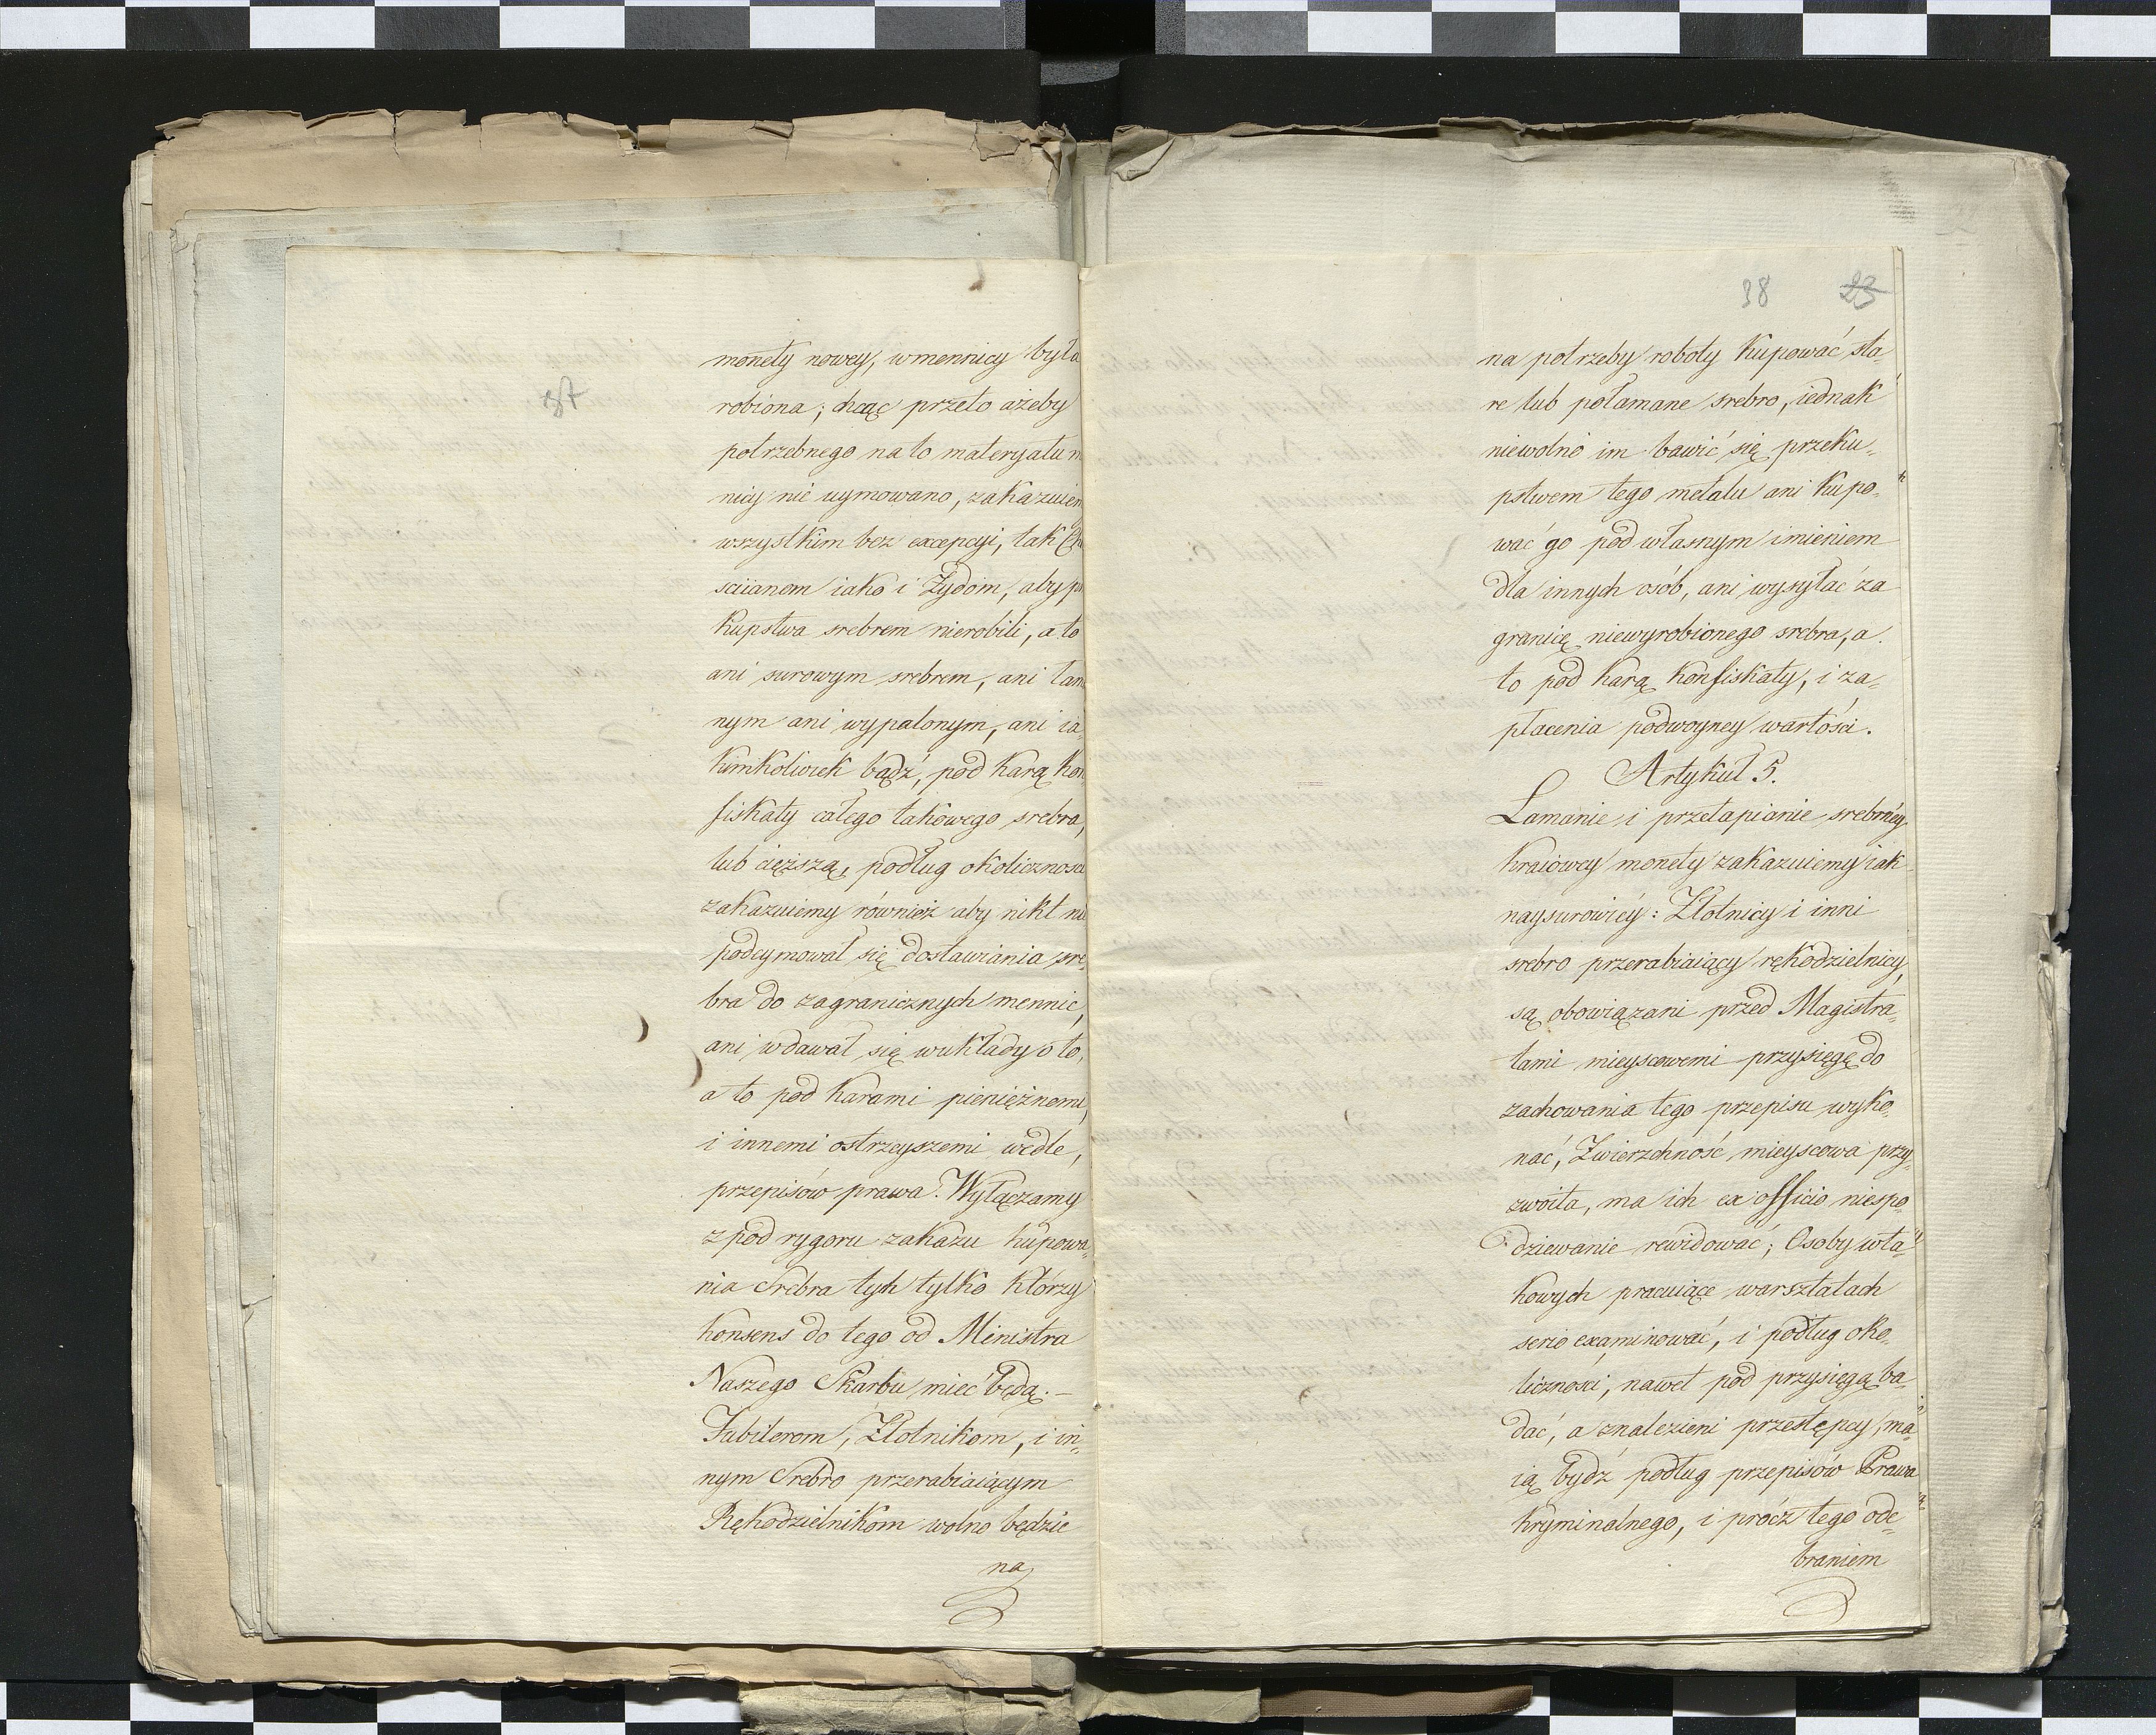 37
monety nowey, w mennicy była
robiona; chcąc przeto ażeby
potrzebnego na to materyału
nicy nie uymowano, zakazuiem
wszystkim bez excepcyi, tak Ch
sciianem iako i Żydom, aby p
kupstwa srebrem nierobili, a to
ani surowym srebrem, ani łam
nym ani wypalonym, ani ia„
kimkolwiek bądź, pod karą kon„
fiskaty całego takowego srebra,
lub cięższą, podług okolicznosci
zakazuiemy również aby nikt nie
podeymował się dostawiania sre„
bra do zagranicznych mennic,
ani wdawał się w układy o to,
a to pod karami pieniężnemi,
i innemi ostrzeyszemi wedle,
przepisów prawa. Wyłączamy
z pod rygoru zakazu kupowa„
nia Srebra tych tylko którzy
konsens do tego od Ministra
Naszego Skarbu mieć będą. —
Jubilerom, Złotnikom, i in„
nym Srebro przerabiaiącym
Rękodzielnikom wolno będzie
na
38 23
na potrzeby roboty kupować sta„
re lub połamane srebro, iednak
niewolno im bawić się przeku„
pstwem tego metalu ani kupo„
wać go pod własnym imieniem
dla innych osób, ani wysyłać za
granicę niewyrobionego srebra, a
to pod karą konfiskaty, i za„
płacenia podwoyney wartości.
Artykuł 5.
Łamanie i przetapianie srebrnéy
kraiowey monety zakazuiemy iak
naysurowiéy: Złotnicy i inni
srebro przerabiaiący rękodzielnicy,
są obowiązani przed Magistra„
tami mieyscowemi przysięgę do
zachowania tego przepisu wyko„
nać, Zwierzchność mieyscowa przy„
zwoita, ma ich ex officio niespo„
dziewanie rewidować; Osoby w ta„
kowych pracuiące warsztatach
serio examinować, i podług oko„
liczności, nawet pod przysięgą ba„
dać, a znalezieni przestępcy, ma„
ią bydź podług przepisów Prawa
kryminalnego, i prócz tego ode„
braniem